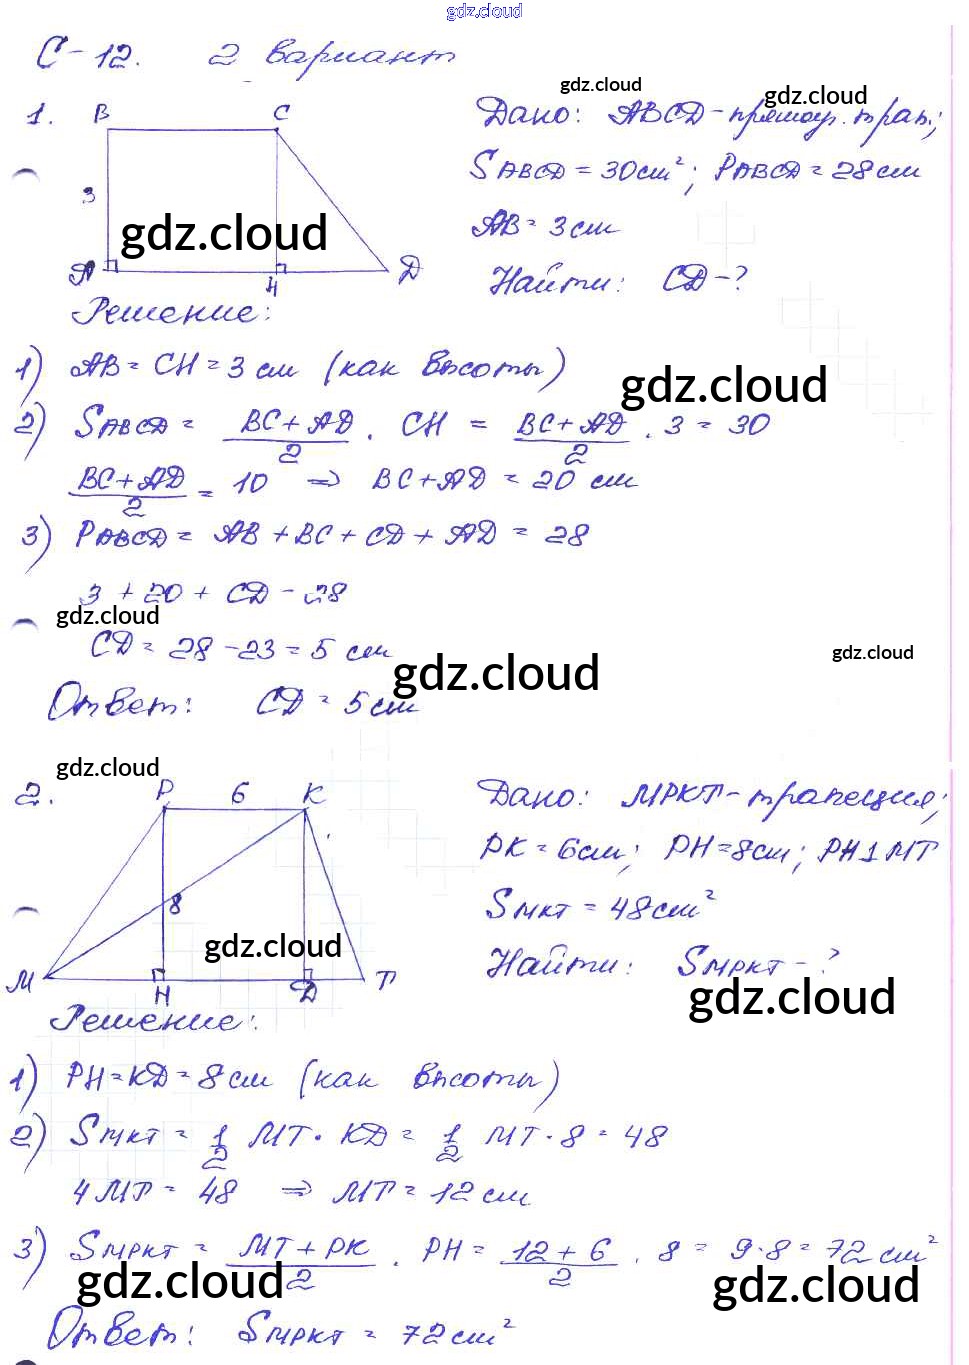 gdz.cloud
С-12. 2 вариант
gdz.cloud
gdz.cloud
1.
B C
3
A H D
gdz.cloud
Дано: ABCD - прямоуг. трап.;
SABCD = 30 см²; PABCD = 28 см
AB = 3 см
Найти: CD - ?
Решение:
1) AB = CH = 3 см (как высоты)
gdz.cloud
2) SABCD = (BC + AD)/2 · CH = (BC + AD)/2 · 3 = 30
(BC + AD)/2 = 10 ⇒ BC + AD = 20 см
3) PABCD = AB + BC + CD + AD = 28
3 + 20 + CD = 28
gdz.cloud
CD = 28 - 23 = 5 см
gdz.cloud
gdz.cloud
Ответ: CD = 5 см
gdz.cloud
2.
P 6 K
8
M H D T
gdz.cloud
Дано: MPKT - трапеция;
PK = 6 см; PH = 8 см; PH ⊥ MT
SMKT = 48 см²
Найти: SMPKT - ?
gdz.cloud
Решение:
1) PH = KD = 8 см (как высоты)
2) SMKT = 1/2 MT · KD = 1/2 MT · 8 = 48
4 MT = 48 ⇒ MT = 12 см
3) SMPKT = (MT + PK)/2 · PH = (12 + 6)/2 · 8 = 9 · 8 = 72 см²
gdz.cloud
gdz.cloud
Ответ: SMPKT = 72 см²